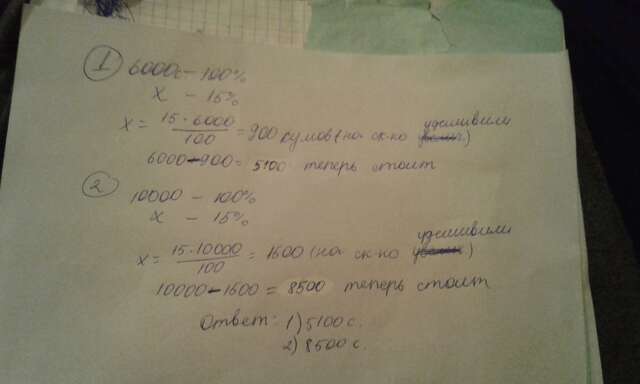 1 6000с - 100%
х - 15%
х = 15·6000/100 = 900 сумов (на ск-ко удешивили)
6000-900 = 5100 теперь стоит
2
10000 - 100%
х - 15%
х = 15·10000/100 = 1500 (на ск-ко удешивили)
10000-1500 = 8500 теперь стоит
Ответ: 1) 5100 с.
2) 8500 с.